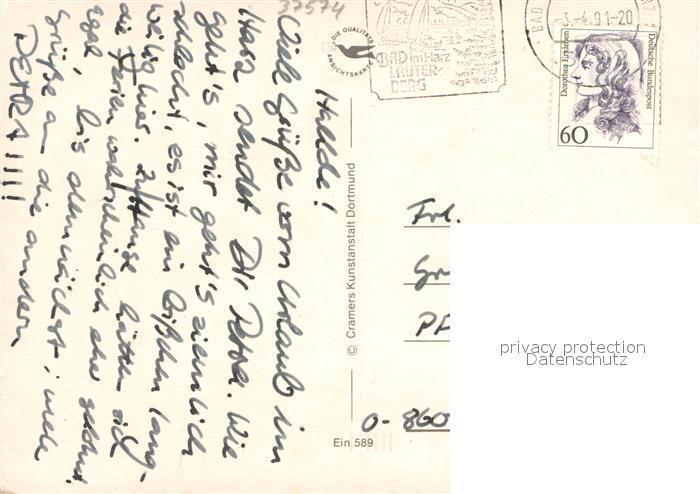 37574
Hallo!
Viele Grüße vom Urlaub im
Harz sendet Dir Petra. Wie
geht's, mir geht's ziemlich
schlecht, es ist ein bißchen lang-
weilig hier. Zuhause hätten sich
die Ferien wahrscheinlich eher gelohnt.
Egal, bis demnächst, viele
Grüße an die andern
PETRA !!!!
DIE QUALITÄTS
ANSICHTSKARTE
© Cramers Kunstanstalt Dortmund
Ein 589
BAD im Harz
LAUTER-
BERG
BAD
-3.-4.91-20
Dorothea Erxleben
Deutsche Bundespost
60
Frl.
Gr
PF
O-860
privacy protection
Datenschutz